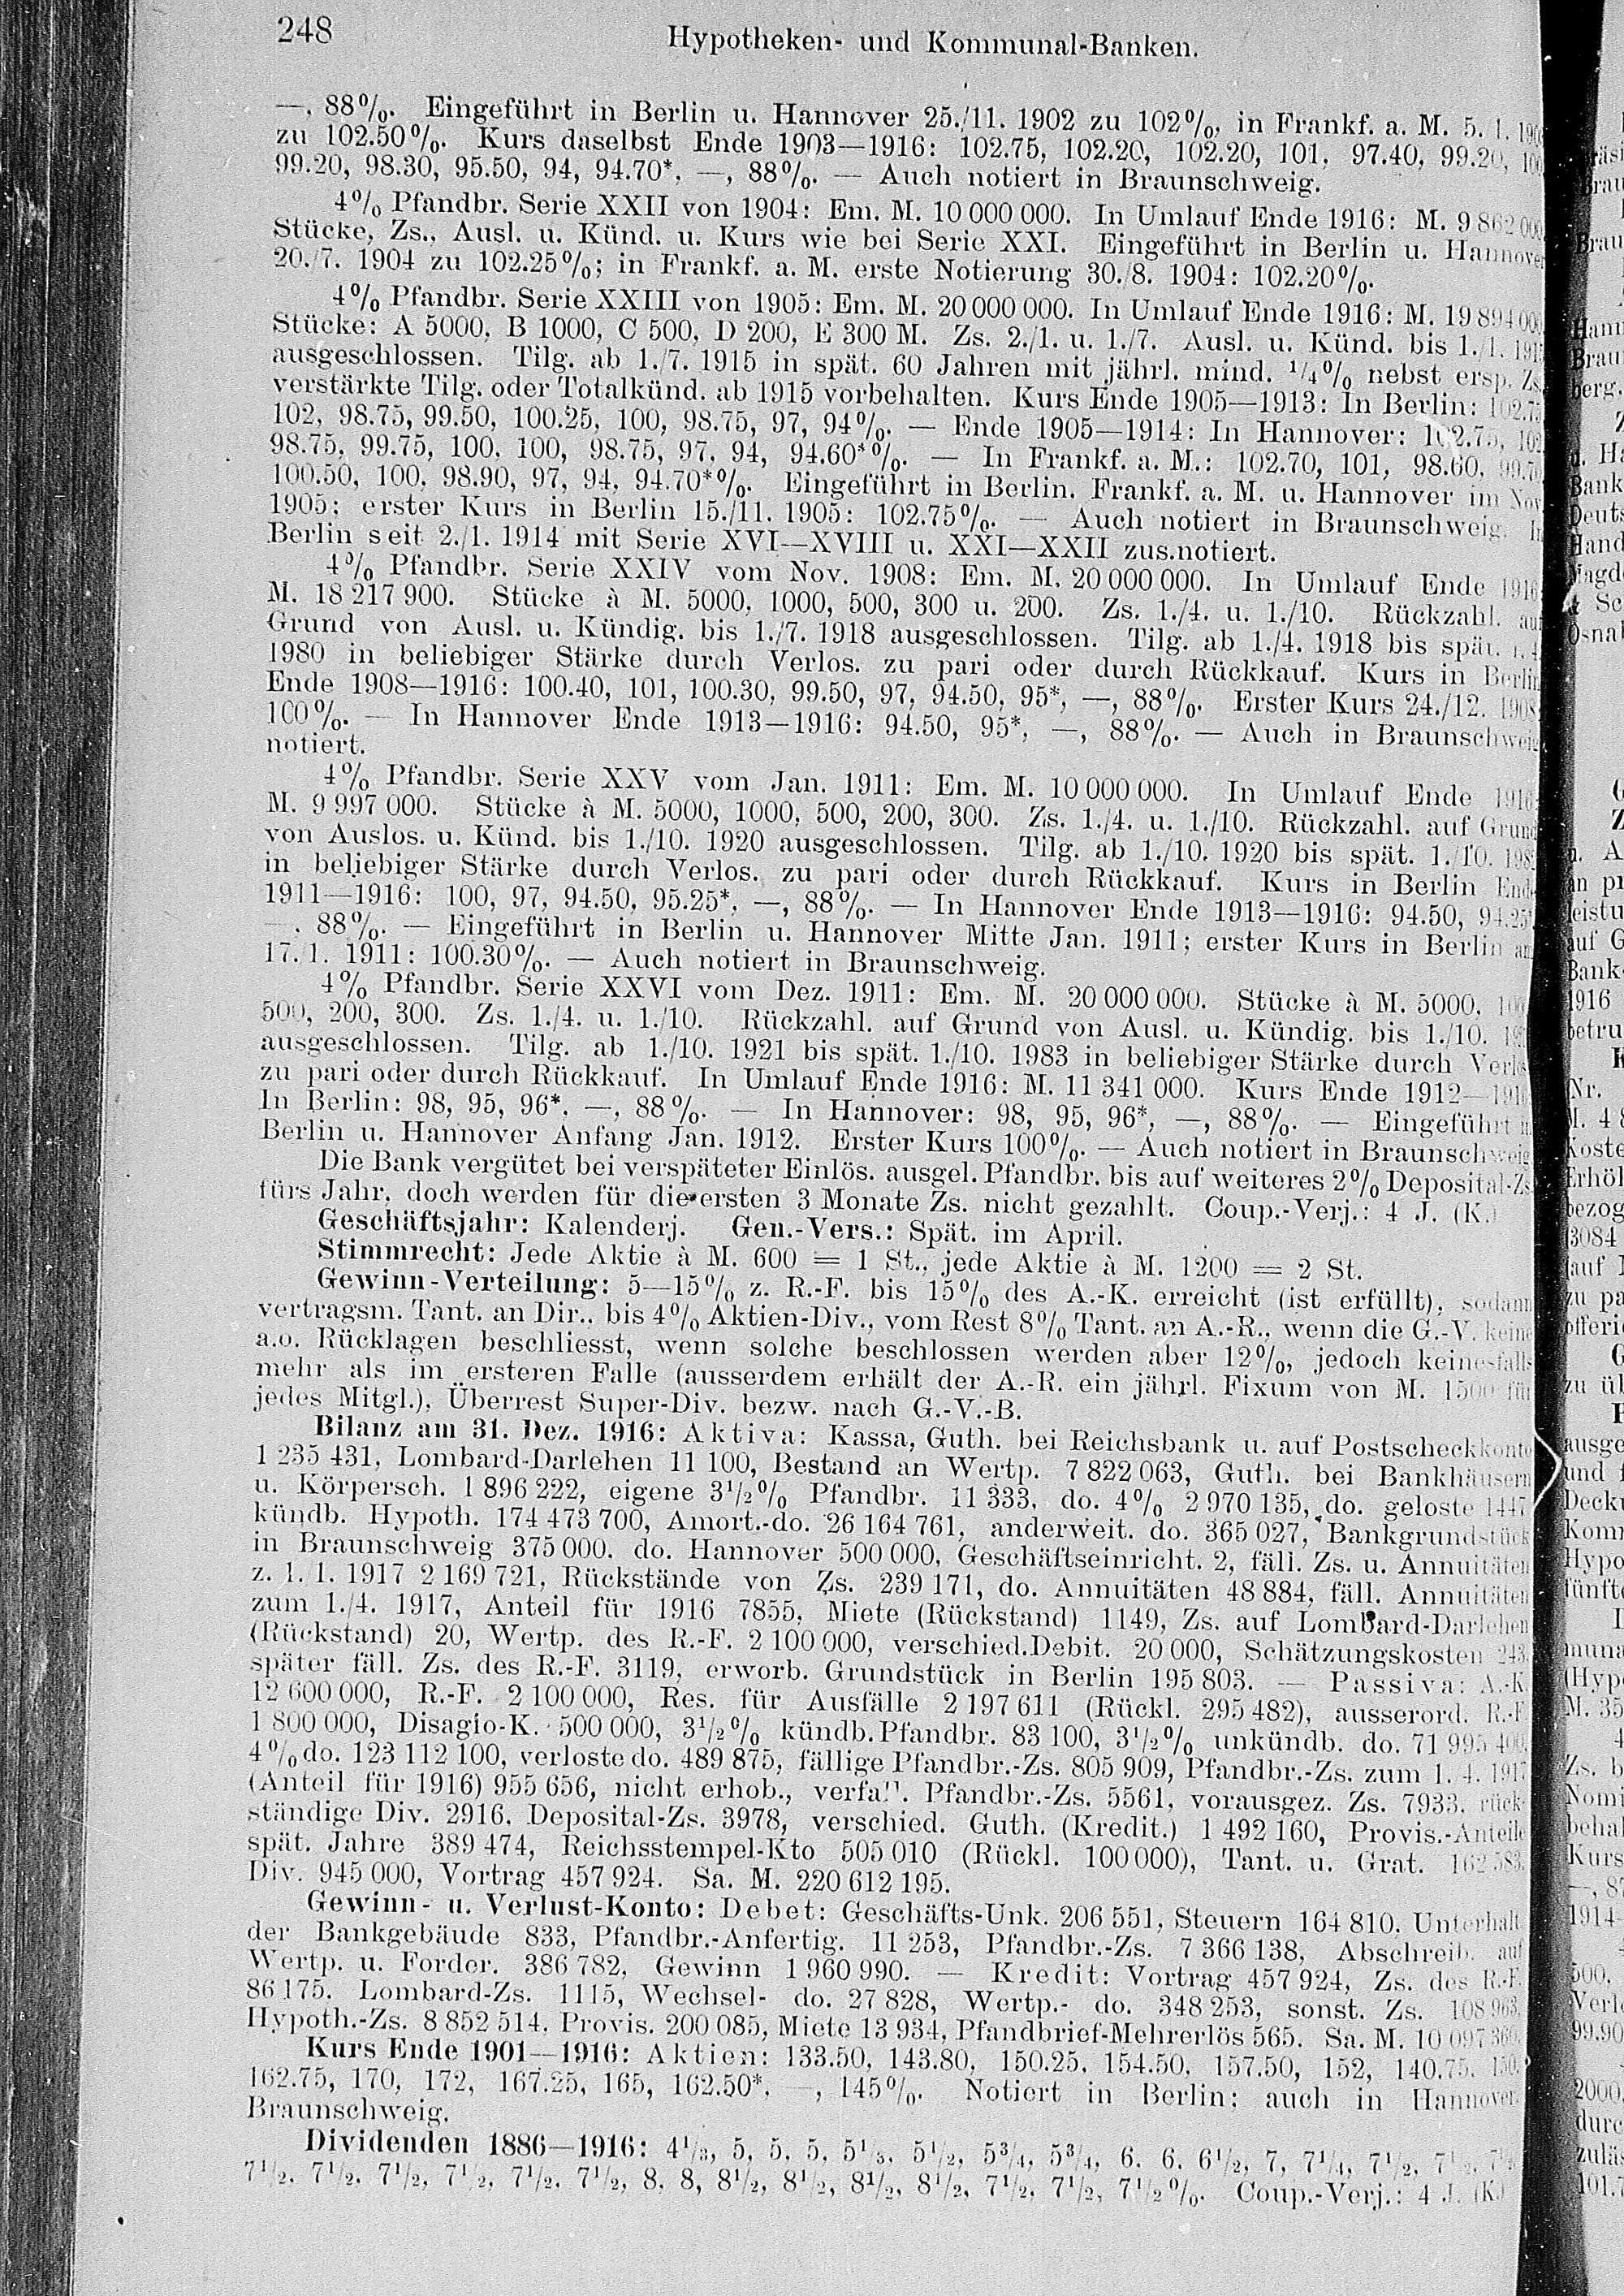 248
Hypotheken- und Kommunal-Banken.
—, 88%. Eingeführt in Berlin u. Hannover 25./11. 1902 zu 102%, in Frankf. a. M. 5. 1.
zu 102.50%. Kurs daselbst Ende 1903—1916: 102.75, 102.20, 102.20, 101, 97.40, 99.20,
99.20, 98.30, 95.50, 94, 94.70*, —, 88%. — Auch notiert in Braunschweig.
4% Pfandbr. Serie XXII von 1904: Em. M. 10 000 000. In Umlauf Ende 1916: M. 9 862 000
Stücke, Zs., Ausl. u. Künd. u. Kurs wie bei Serie XXI. Eingeführt in Berlin u. Hannover
20./7. 1904 zu 102.25%; in Frankf. a. M. erste Notierung 30./8. 1904: 102.20%.
4% Pfandbr. Serie XXIII von 1905: Em. M. 20 000 000. In Umlauf Ende 1916: M. 19 894 000
Stücke: A 5000, B 1000, C 500, D 200, E 300 M. Zs. 2./1. u. 1./7. Ausl. u. Künd. bis 1./1. 1915
ausgeschlossen. Tilg. ab 1./7. 1915 in spät. 60 Jahren mit jährl. mind. 1/4% nebst ersp. Zs.
verstärkte Tilg. oder Totalkünd. ab 1915 vorbehalten. Kurs Ende 1905—1913: In Berlin: 102.75
102, 98.75, 99.50, 100.25, 100, 98.75, 97, 94%. — Ende 1905—1914: In Hannover: 102.75, 102
98.75, 99.75, 100, 100, 98.75, 97, 94, 94.60*%. — In Frankf. a. M.: 102.70, 101, 98.60, 99.70
100.50, 100, 98.90, 97, 94, 94.70*%. Eingeführt in Berlin, Frankf. a. M. u. Hannover im Nov
1905; erster Kurs in Berlin 15./11. 1905: 102.75%. — Auch notiert in Braunschweig. In
Berlin seit 2./1. 1914 mit Serie XVI—XVIII u. XXI—XXII zus.notiert.
4% Pfandbr. Serie XXIV vom Nov. 1908: Em. M. 20 000 000. In Umlauf Ende 1916
M. 18 217 900. Stücke à M. 5000, 1000, 500, 300 u. 200. Zs. 1./4. u. 1./10. Rückzahl. auf
Grund von Ausl. u. Kündig. bis 1./7. 1918 ausgeschlossen. Tilg. ab 1./4. 1918 bis spät. 1./4
1980 in beliebiger Stärke durch Verlos. zu pari oder durch Rückkauf. Kurs in Berlin
Ende 1908—1916: 100.40, 101, 100.30, 99.50, 97, 94.50, 95*, —, 88%. Erster Kurs 24./12. 1908
100%. — In Hannover Ende 1913—1916: 94.50, 95*, —, 88%. — Auch in Braunschweig
notiert.
4% Pfandbr. Serie XXV vom Jan. 1911: Em. M. 10 000 000. In Umlauf Ende 1916
M. 9 997 000. Stücke à M. 5000, 1000, 500, 200, 300. Zs. 1./4. u. 1./10. Rückzahl. auf Grund
von Auslos. u. Künd. bis 1./10. 1920 ausgeschlossen. Tilg. ab 1./10. 1920 bis spät. 1./10.
in beliebiger Stärke durch Verlos. zu pari oder durch Rückkauf. Kurs in Berlin Ende
1911—1916: 100, 97, 94.50, 95.25*, —, 88%. — In Hannover Ende 1913—1916: 94.50, 94.25*
—, 88%. — Eingeführt in Berlin u. Hannover Mitte Jan. 1911; erster Kurs in Berlin am
17./1. 1911: 100.30%. — Auch notiert in Braunschweig.
4% Pfandbr. Serie XXVI vom Dez. 1911: Em. M. 20 000 000. Stücke à M. 5000,
500, 200, 300. Zs. 1./4. u. 1./10. Rückzahl. auf Grund von Ausl. u. Kündig. bis 1./10.
ausgeschlossen. Tilg. ab 1./10. 1921 bis spät. 1./10. 1983 in beliebiger Stärke durch Verlos
zu pari oder durch Rückkauf. In Umlauf Ende 1916: M. 11 341 000. Kurs Ende 1912—1916
In Berlin: 98, 95, 96*, —, 88%. — In Hannover: 98, 95, 96*, —, 88%. — Eingeführt in
Berlin u. Hannover Anfang Jan. 1912. Erster Kurs 100%. — Auch notiert in Braunschweig
Die Bank vergütet bei verspäteter Einlös. ausgel. Pfandbr. bis auf weiteres 2% Deposital-Zs
fürs Jahr, doch werden für die ersten 3 Monate Zs. nicht gezahlt. Coup.-Verj.: 4 J. (K.)
Geschäftsjahr: Kalenderj. Gen.-Vers.: Spät. im April.
Stimmrecht: Jede Aktie à M. 600 = 1 St., jede Aktie à M. 1200 = 2 St.
Gewinn-Verteilung: 5—15% z. R.-F. bis 15% des A.-K. erreicht (ist erfüllt), sodann
vertragsm. Tant. an Dir., bis 4% Aktien-Div., vom Rest 8% Tant. an A.-R., wenn die G.-V. keine
a.o. Rücklagen beschliesst, wenn solche beschlossen werden aber 12%, jedoch keinesfalls
mehr als im ersteren Falle (ausserdem erhält der A.-R. ein jährl. Fixum von M. 1500 für
jedes Mitgl.), Überrest Super-Div. bezw. nach G.-V.-B.
Bilanz am 31. Dez. 1916: Aktiva: Kassa, Guth. bei Reichsbank u. auf Postscheckkonto
1 235 431, Lombard-Darlehen 11 100, Bestand an Wertp. 7 822 063, Guth. bei Bankhäusern
u. Körpersch. 1 896 222, eigene 3 1/2% Pfandbr. 11 333, do. 4% 2 970 135, do. geloste 1447
kündb. Hypoth. 174 473 700, Amort.-do. 26 164 761, anderweit. do. 365 027, Bankgrundstück
in Braunschweig 375 000, do. Hannover 500 000, Geschäftseinricht. 2, fäll. Zs. u. Annuitäten
z. 1. 1. 1917 2 169 721, Rückstände von Zs. 239 171, do. Annuitäten 48 884, fäll. Annuitäten
zum 1./4. 1917, Anteil für 1916 7855, Miete (Rückstand) 1149, Zs. auf Lombard-Darlehen
(Rückstand) 20, Wertp. des R.-F. 2 100 000, verschied.Debit. 20 000, Schätzungskosten 243,
später fäll. Zs. des R.-F. 3119, erworb. Grundstück in Berlin 195 803. — Passiva: A.-K.
12 600 000, R.-F. 2 100 000, Res. für Ausfälle 2 197 611 (Rückl. 295 482), ausserord. R.-F.
1 800 000, Disagio-K. 500 000, 3 1/2% kündb. Pfandbr. 83 100, 3 1/2% unkündb. do. 71 995 400,
4% do. 123 112 100, verloste do. 489 875, fällige Pfandbr.-Zs. 805 909, Pfandbr.-Zs. zum 1. 4. 1917
(Anteil für 1916) 955 656, nicht erhob., verfall. Pfandbr.-Zs. 5561, vorausgez. Zs. 7933, rück-
ständige Div. 2916, Deposital-Zs. 3978, verschied. Guth. (Kredit.) 1 492 160, Provis.-Anteile
spät. Jahre 389 474, Reichsstempel-Kto 505 010 (Rückl. 100 000), Tant. u. Grat. 162 583,
Div. 945 000, Vortrag 457 924. Sa. M. 220 612 195.
Gewinn- u. Verlust-Konto: Debet: Geschäfts-Unk. 206 551, Steuern 164 810, Unterhalt.
der Bankgebäude 833, Pfandbr.-Anfertig. 11 253, Pfandbr.-Zs. 7 366 138, Abschreib. auf
Wertp. u. Forder. 386 782, Gewinn 1 960 990. — Kredit: Vortrag 457 924, Zs. des R.-F.
86 175, Lombard-Zs. 1115, Wechsel- do. 27 828, Wertp.- do. 348 253, sonst. Zs. 108 963,
Hypoth.-Zs. 8 852 514, Provis. 200 085, Miete 13 934, Pfandbrief-Mehrerlös 565. Sa. M. 10 097 360.
Kurs Ende 1901—1916: Aktien: 133.50, 143.80, 150.25, 154.50, 157.50, 152, 140.75, 150,
162.75, 170, 172, 167.25, 165, 162.50*, —, 145%. Notiert in Berlin; auch in Hannover,
Braunschweig.
Dividenden 1886—1916: 4 1/3, 5, 5, 5, 5 1/3, 5 1/2, 5 3/4, 5 3/4, 6, 6, 6 1/2, 7, 7 1/4, 7 1/2,
7 1/2, 7 1/2, 7 1/2, 7 1/2, 7 1/2, 7 1/2, 8, 8, 8 1/2, 8 1/2, 8 1/2, 8 1/2, 7 1/2, 7 1/2, 7 1/2%. Coup.-Verj.: 4 J. (K.)